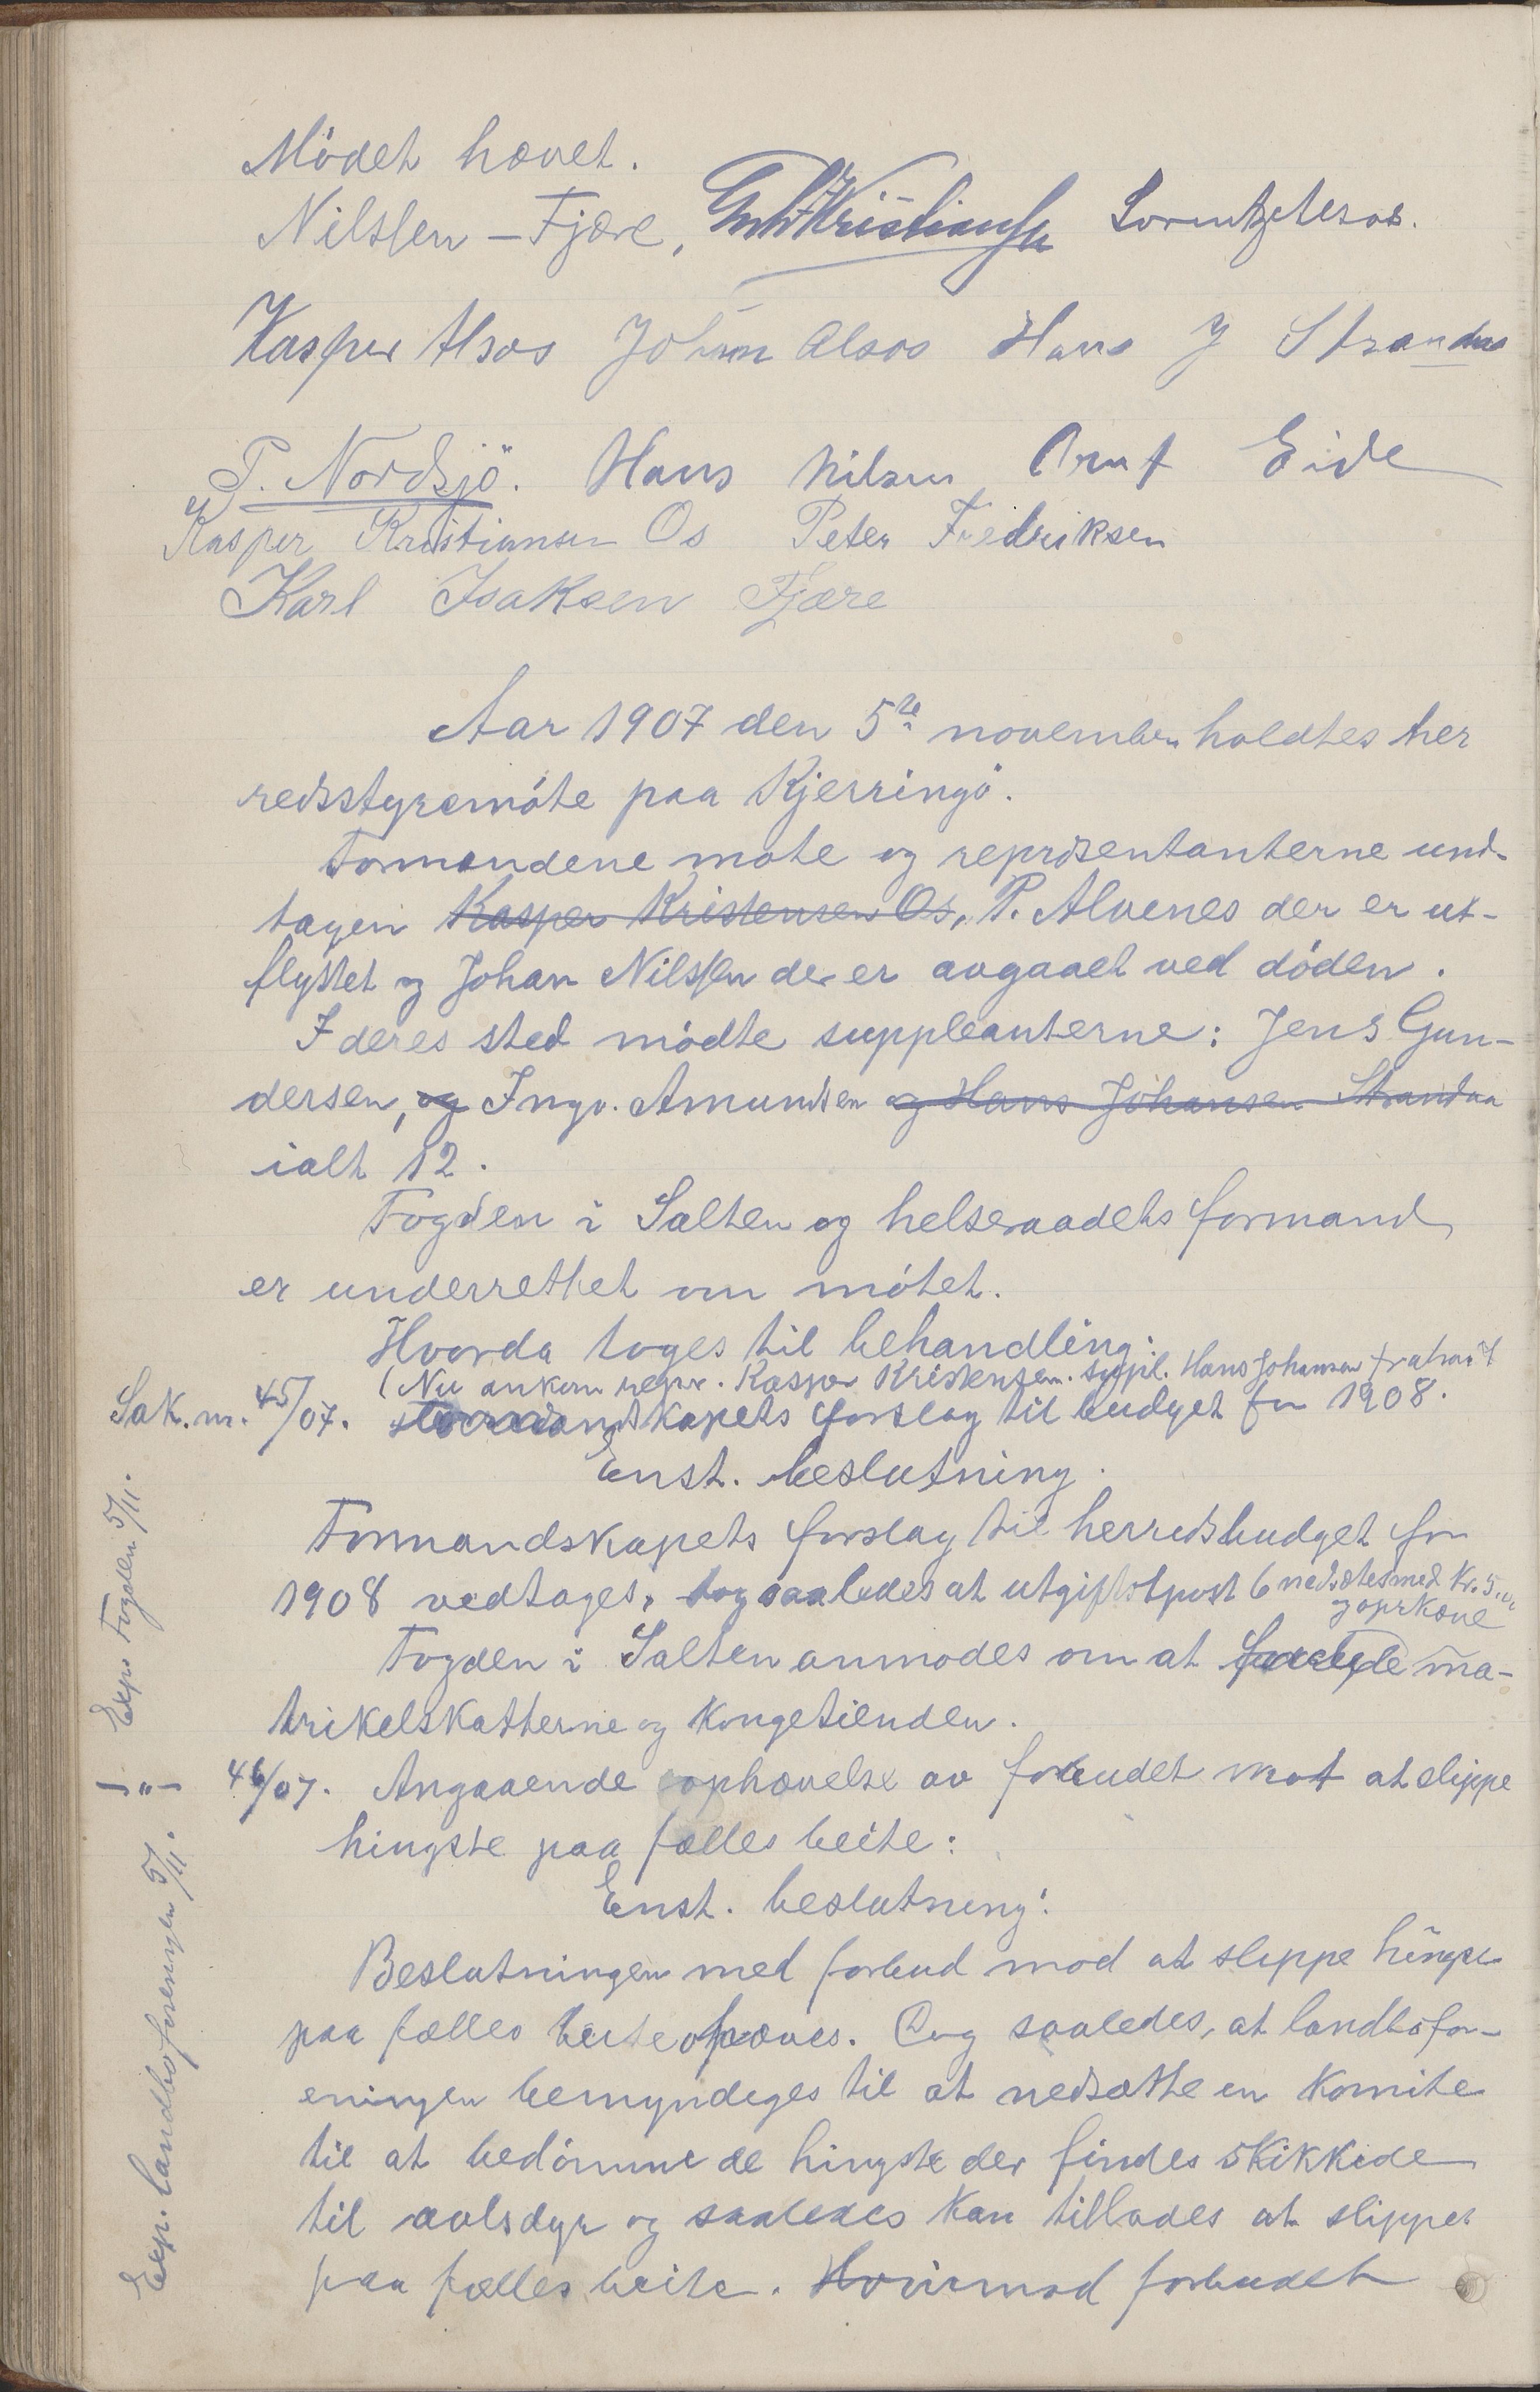 Mödet hævet.
Nilssen - Fjære, Kristiansen
Kasper Alsos Johan Alsos Hans J Strandaa
P. Nordsjö. Hans Nilsen Arnt Eide
Kasper Kristiansen Os Peter Fredriksen
Karl Isaksen Fjære
Aar 1907 den 5te november holdtes her
redsstyremöte paa Kjerringö.
Formændene møte og repræsentanterne und-
tagen Kasper Kristensen Os, P. Alvenes der er ut-
flyttet og Johan Nilssen der er avgaaet ved döden.
I deres sted mödte suppleanterne: Jens Gun-
dersen, og Ingv. Amundsen og Hans Johansen Strandaa
ialt 12.
Fogden i Salten og helseraadets formand
er underrettet om mötet.
Hvorda toges til behandling:
(Nu ankom repr. Kasper Kristensen. suppl. Hans Johansen fratraadt
Sak. nr. 45/07. Formandskapets forslag til budget for 1908.
Enst. beslutning.
Formandskapets forslag til herredsbudget for
1908 vedtages, dog saaledes at utgiftspost 6 nedsættes med Kr. 5.00
og opkræve
Fogden i Salten anmodes om at ma-
trikelskatterne og Kongetienden.
Exp. Fogden 5/11.
46/07. Angaaende ophævelse av forbudet mot at slippe
hingste paa fælles beite:
Enst. beslutning:
Beslutningen med forbud mod at slippe hingste
paa fælles beite ophæves. Dog saaledes, at landbofor-
eningen bemyndiges til at nedsætte en Komite
til at bedömme de hingste der findes skikkede
til avlsdyr og saaledes kan tillades at slippes
paa fælles beite. Hvorimod forbudet
Exp. landboforeningen 5/11.